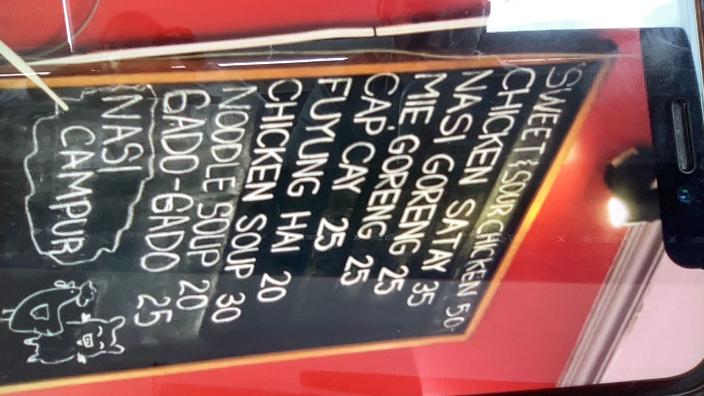 SWEET & SOUR CHICKEN 50
CHICKEN SATAY 35
NASI GORENG 25
MIE GORENG 25
CAP.CAY 25
FUYUNG HAI 20
CHICKEN SOUP 30
NOODLE SOUP 20
GADO-GADO 25
NASI
CAMPUR